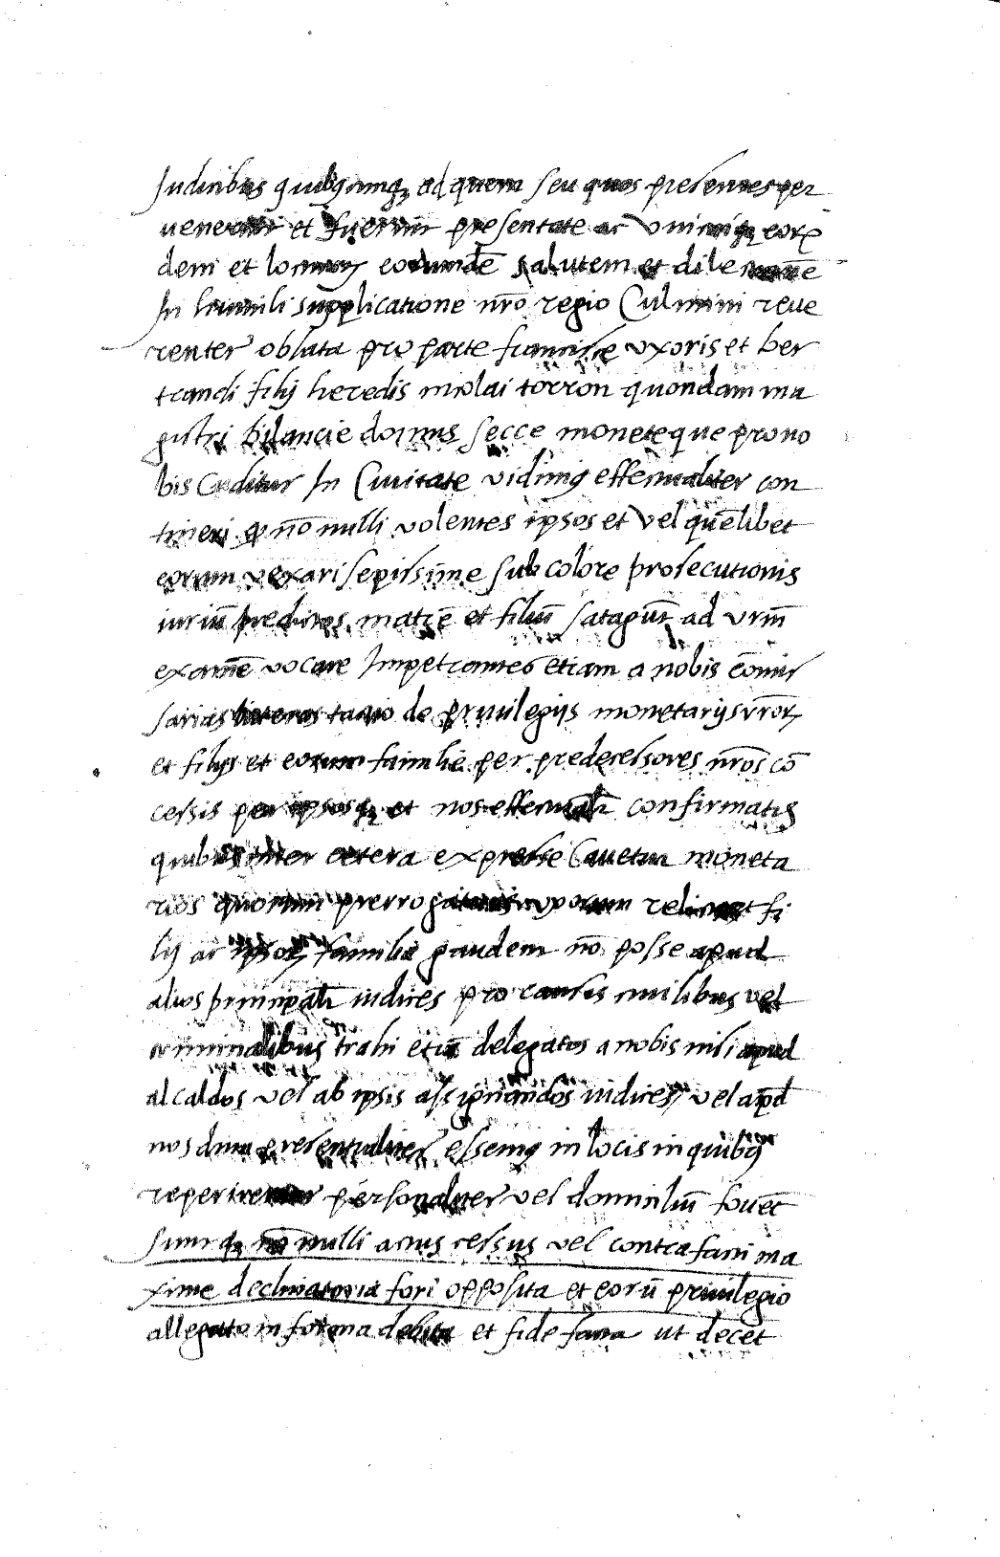 Iudicibus quibuscunq₃ ad quem seu quos presentes per
uenerint et fuerint presentate ac vnicuiq₃ eorꝝ
dem et locum eorundē salutem et dilectionē
In humili supplicatione nr̄o regio Culmini reue
renter oblata pro parte francisce vxoris et ber
trandi filij heredis nicolai torron quondam ma
gistri bilancie domus secce monete que pro no
bis Cuditur In Ciuitate vidimus effectualiter con
tineri ꝙ nōnulli volentes ipsos et vel quēlibet
eorum vexari sepissime sub colore prosecutionis
iuriū predictos matrē et filiū satagūt ad vrm̄
examē vocare Impetrantes etiam a nobis cōmis
sarias literas tacito de priuilegijs monetarijs vxorꝝ
et filijs et eorum familie per predecessores nr̄os cō
cessis per ipsosq₃ et nos effectualr̄ confirmatis
quibus inter cetera expresse Cauetur moneta
rios quorum prerrogatiuis vxorum relicte et fi
lij ac ipsorꝝ familie gaudent nō posse apud
alios principalr̄ iudices pro causis ciuilibus vel
criminalibus trahi etiā delegatos a nobis nisi apud
alcaldos vel ab ipsis assignandos iudices vel apd̄
nos dum presentialiter essemus in locis in quibus
reperirentur personaliter vel domiciliū fouēt
suntq₃ nōnulli actus cessus vel contrafacti ma
xime declinatoria fori opposita et eorū priuilegio
allegato in forma debita et fide facta ut decet